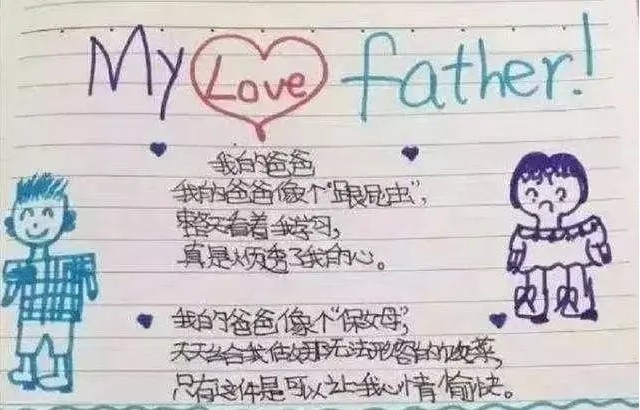 My Love father!
我的爸爸
我的爸爸像个"跟屁虫",
整天看着我学习,
真是烦透了我的心。
我的爸爸像个"保女母",
天天给我做那无法形容的饭菜,
只有这件是可以让我心情愉快。